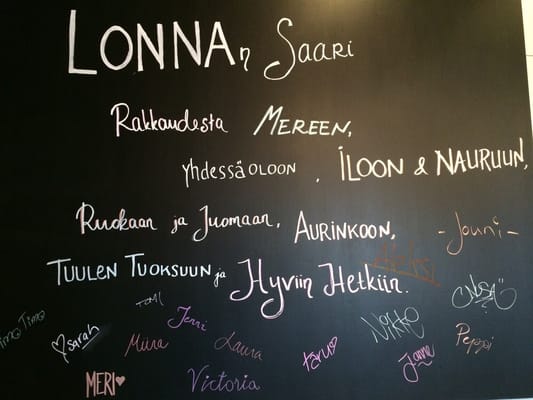 LONNAn Saari
Rakkaudesta MEREEN,
yhdessäOLOON, ILOON & NAURUUN,
Ruokaan ja Juomaan, AURINKOON,
-Jouni-
TUULEN TUOKSUUN ja Hyviin Hetkiin.
TOMI
Timo Timo
Jenni
sarah
Miina
Laura
taru
Janne
Peppi
MERI
Victoria